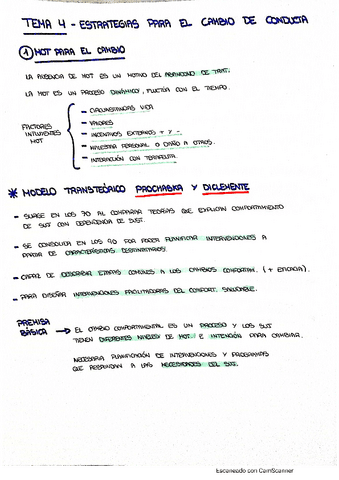 TEMA 4 - ESTRATEGIAS PARA EL CAMBIO DE CONDUCTA
① MOT PARA EL CAMBIO
LA AUSENCIA DE MOT ES UN MOTIVO DEL ABANDONO DE TRAT.
LA MOT ES UN PROCESO DINÁMICO, FLUCTÚA CON EL TIEMPO.
FACTORES INFLUYENTES MOT
- CIRCUNSTANCIAS VIDA
- VALORES
- INCENTIVOS EXTERNOS + Y -
- MALESTAR PERSONAL O DAÑO A OTROS.
- INTERACCIÓN CON TERAPEUTA.
* MODELO TRANSTEÓRICO PROCHASKA Y DICLEMENTE
- SURGE EN LOS 70 AL COMPARAR TEORÍAS QUE EXPLICAN COMPORTAMIENTO
DE SUJT CON DEPENDENCIA DE SUST.
- SE CONSOLIDA EN LOS 90 POR PODER PLANIFICAR INTERVENCIONES A
PARTIR DE CARACTERÍSTICAS DESTINATARIOS.
- CAPAZ DE DESCRIBIR ETAPAS COMUNES A LOS CAMBIOS COMPORTAM. (+ EFICACIA).
- PARA DISEÑAR INTERVENCIONES FACILITADORAS DEL COMPORT. SALUDABLE.
PREMISA BÁSICA → EL CAMBIO COMPORTAMENTAL ES UN PROCESO Y LOS SUJT
TIENEN DIFERENTES NIVELES DE MOT. E INTENCIÓN PARA CAMBIAR.
NECESARIA PLANIFICACIÓN DE INTERVENCIONES Y PROGRAMAS
QUE RESPONDAN A LAS NECESIDADES DEL SUJT.
Escaneado con CamScanner